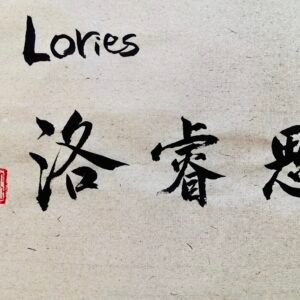 Lories
洛睿